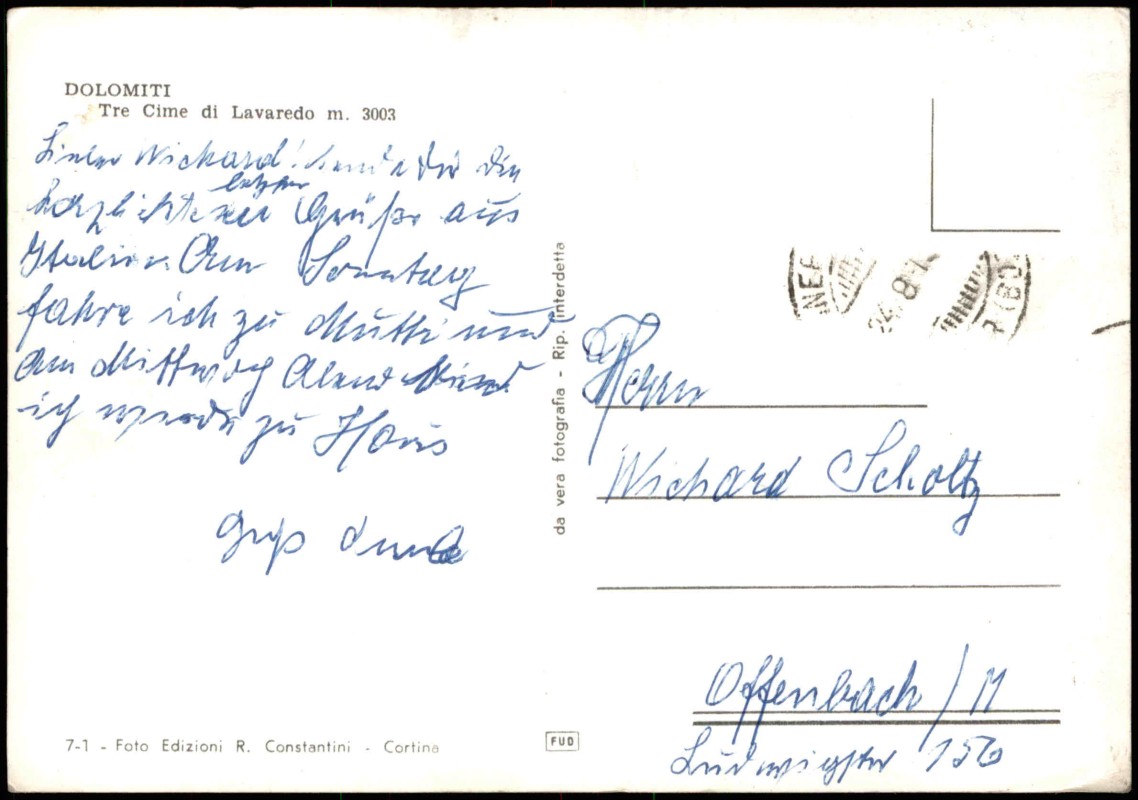 DOLOMITI
Tre Cime di Lavaredo m. 3003
Lieber Wichard! sende dir die
letzten
herzlichsten Grüße aus
Italien. Am Sonntag
fahre ich zu Mutti und
am Mittwoch Abend
ich werde zu Haus
Gruß
da vera fotografia - Rip. interdetta
24.8.1
Herrn
Wichard Scholtz
Offenbach/M
Ludwigstr 156
7-1 - Foto Edizioni R. Constantini - Cortina
FUD